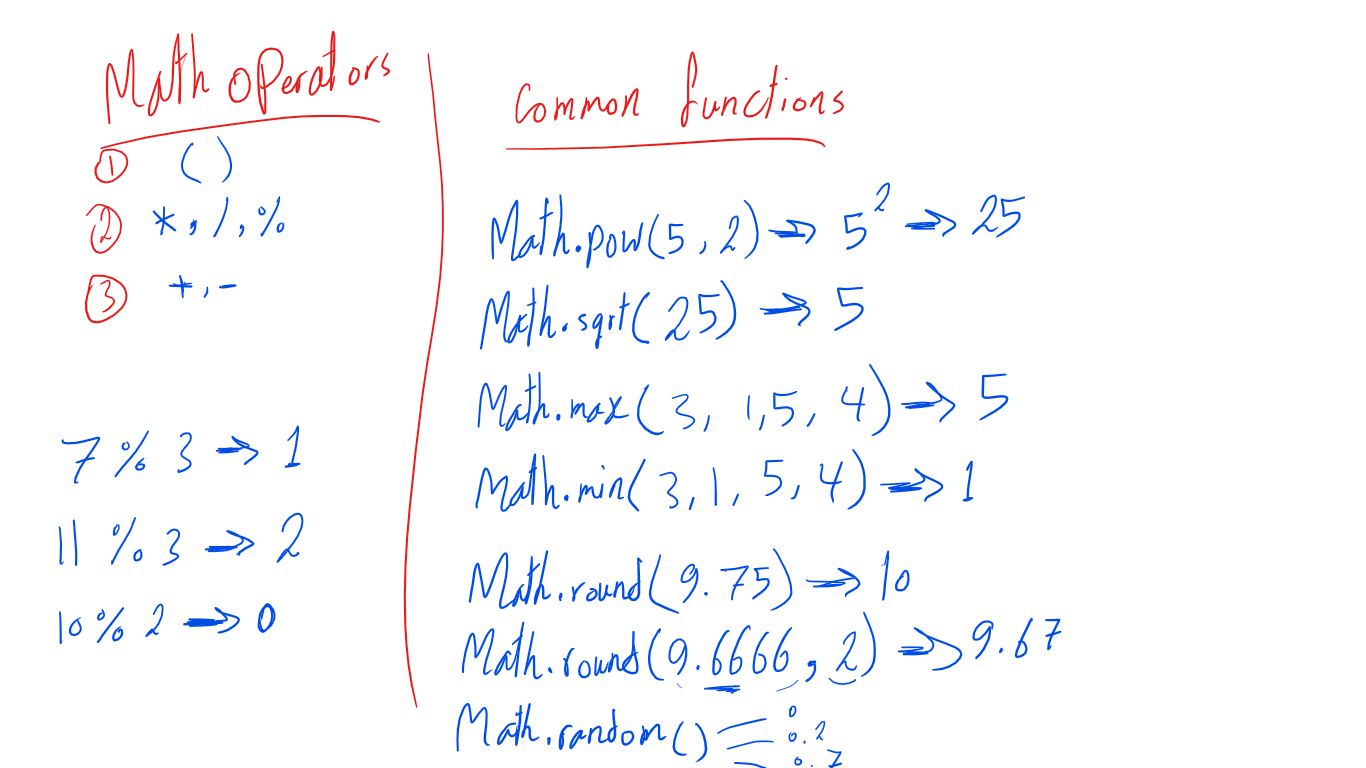 Math operators
① ( )
② *, /, %
③ +, -
7 % 3 ⇒ 1
11 % 3 ⇒ 2
10 % 2 ⇒ 0
Common functions
Math.pow(5, 2) ⇒ 5² ⇒ 25
Math.sqrt(25) ⇒ 5
Math.max(3, 1, 5, 4) ⇒ 5
Math.min(3, 1, 5, 4) ⇒ 1
Math.round(9.75) ⇒ 10
Math.round(9.6666, 2) ⇒ 9.67
Math.random()
0
0.2
0.7